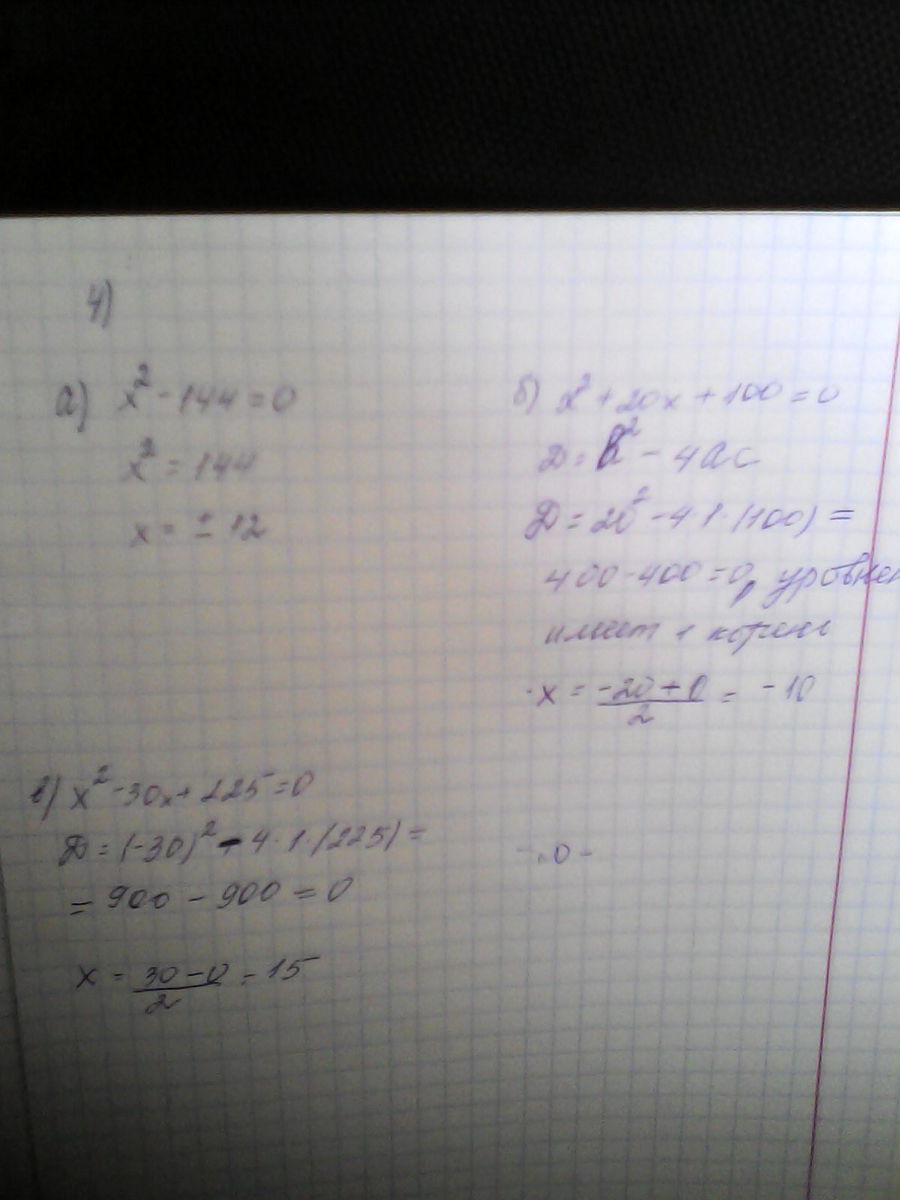 4)
а) x² - 144 = 0
x² = 144
x = ± 12
б) x² + 20x + 100 = 0
D = b² - 4ac
D = 20² - 4·1·(100) =
400 - 400 = 0, уровнен
имеет 1 корень
x = (-20 + 0)/2 = -10
в) x² - 30x + 225 = 0
D = (-30)² - 4·1·(225) =
= 900 - 900 = 0
x = (30 - 0)/2 = 15